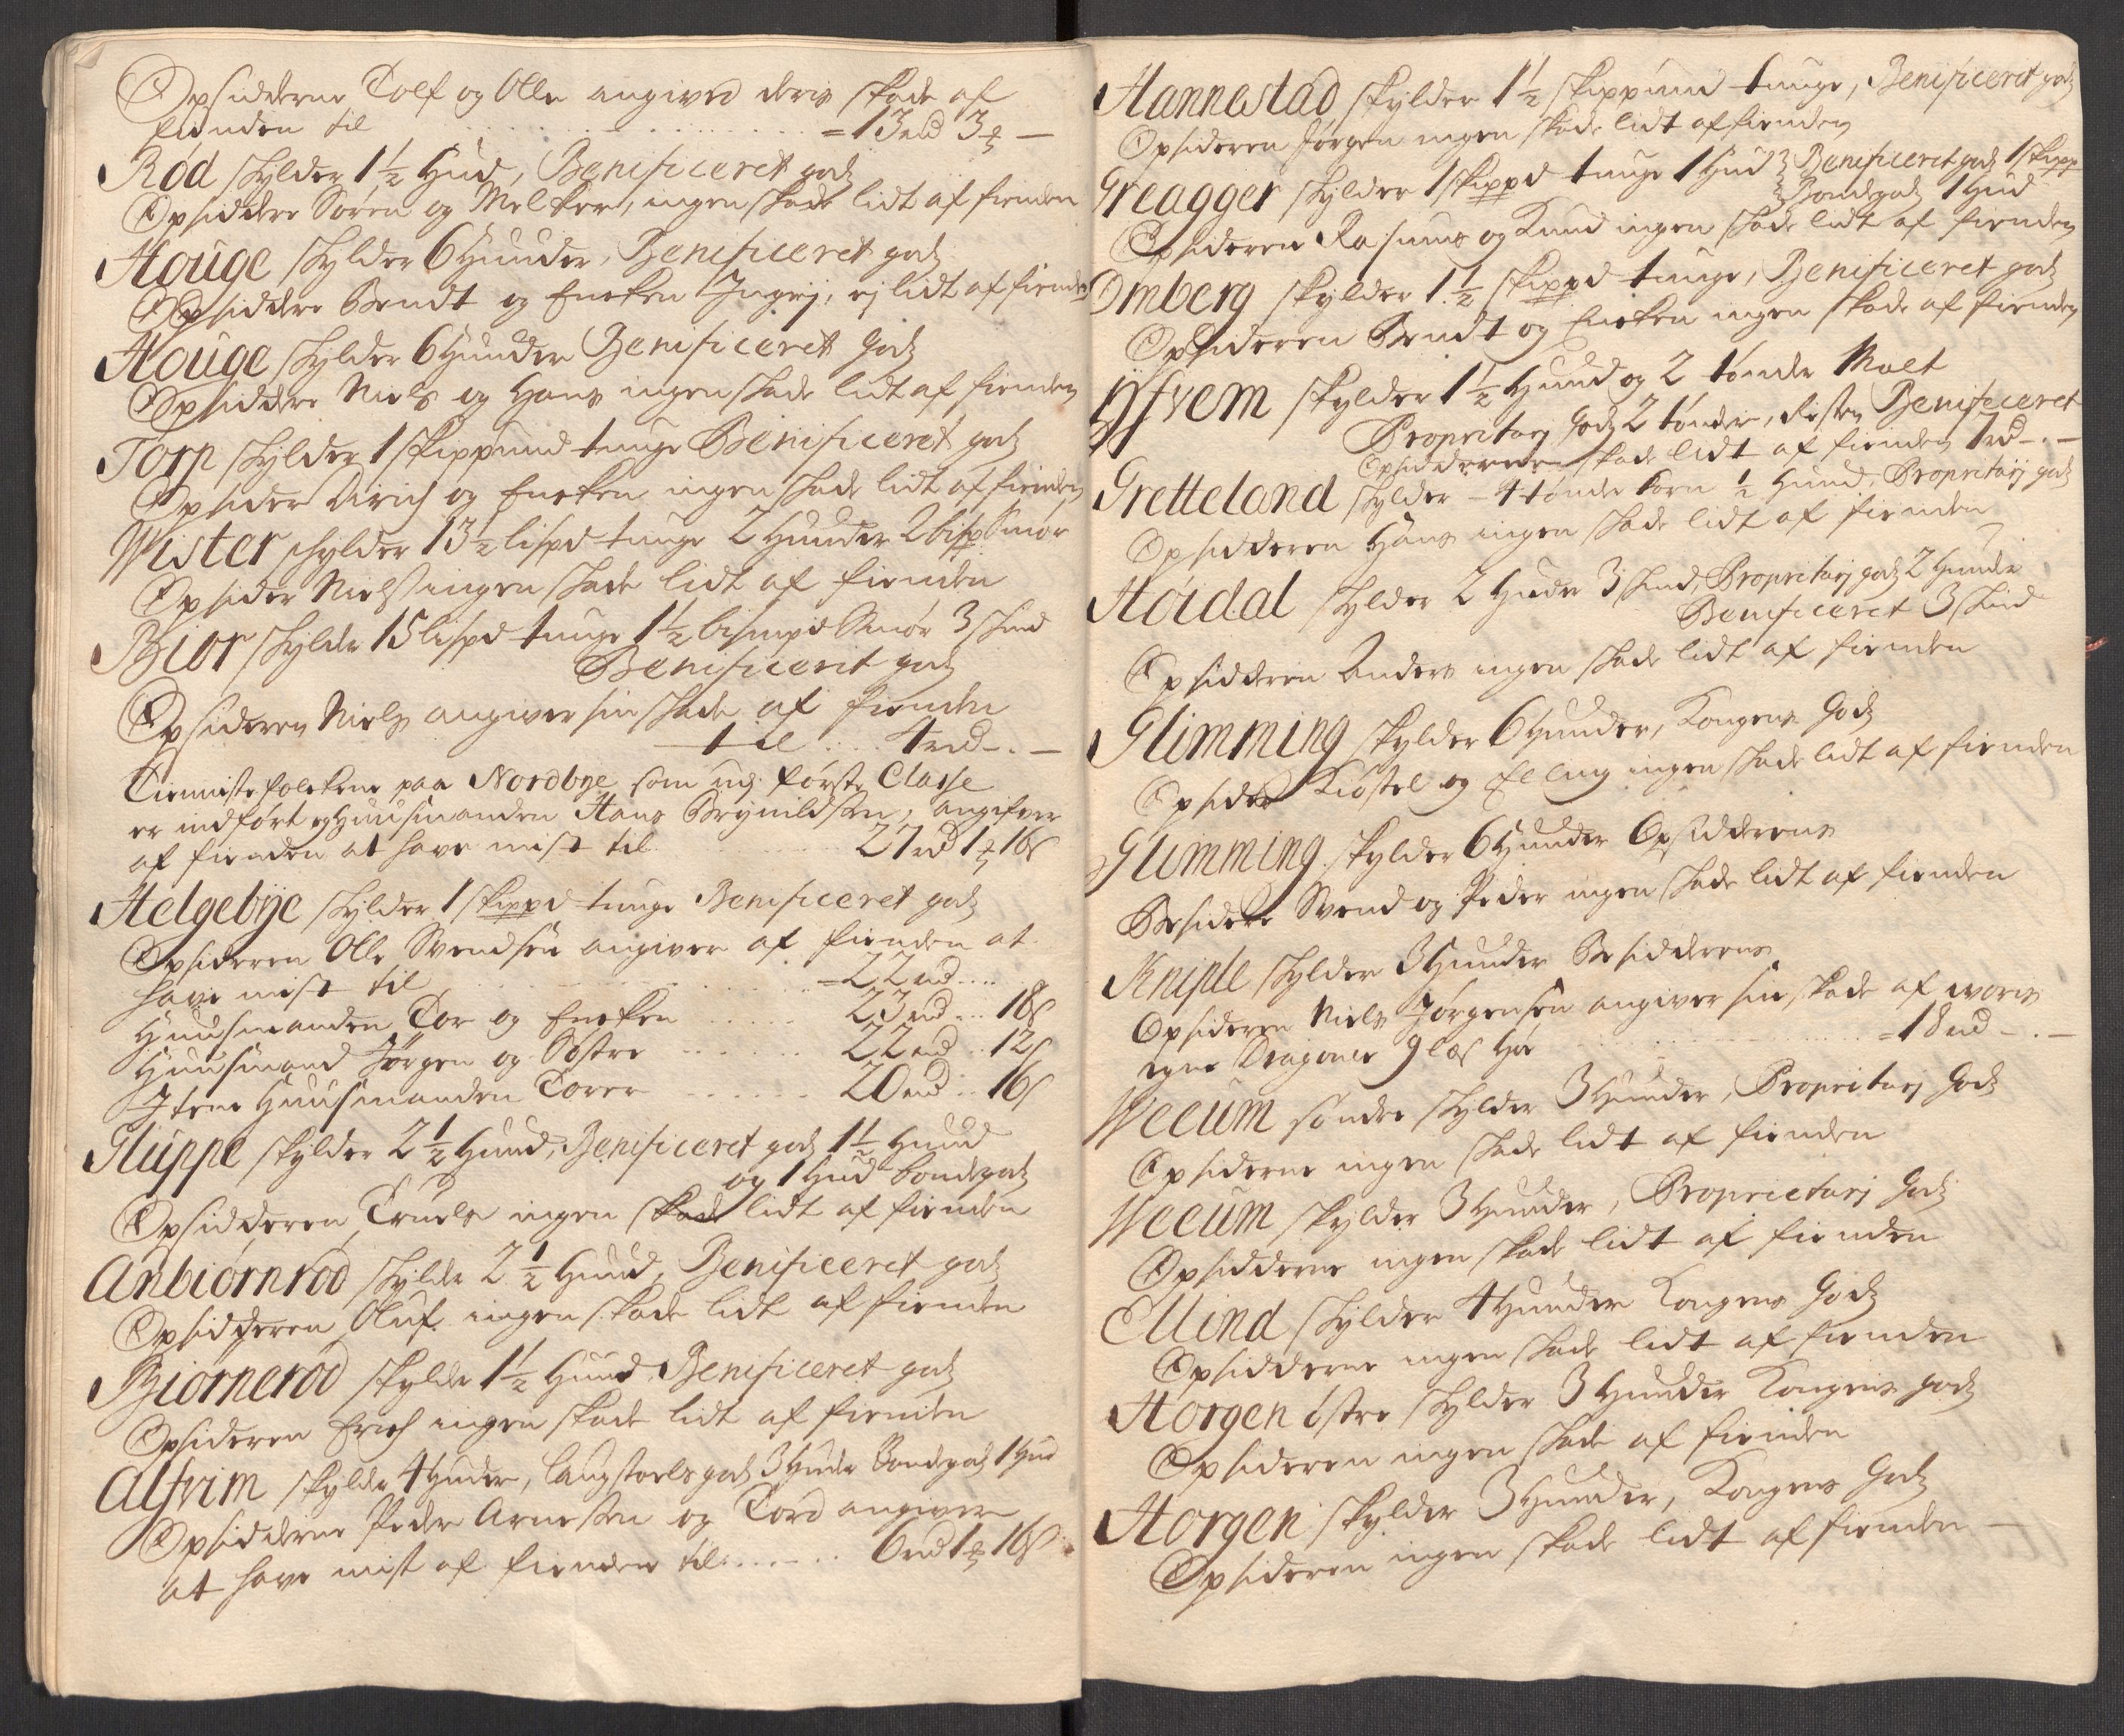 Opsidderne Tolf og Olle angived deris skade af
fienden til . . . = 13 rd 3 ₰ —
Rød skylder 1½ Hud, Benificeret gods
Opsiddere Søren og Melker, ingen skade lidt af fienden
Houge skylder 6 Huuder, Benificeret gods
Opsiddere Bendt og Encken Ingrj, ej lidt af fienden
Houge skylder 6 Huuder Benificeret Gods
Opsiddere Niels og Hans ingen skade lidt af fienden
Torp skylder 1 skippund tunge Benificeret gods
Opsider Dirich og Encken ingen skade lidt af fienden
Wister schylder 13½ lispd tunge 2 Huuder 2 bisp Smør
Opsider Niels ingen skade lidt af fienden
Biør skylde 15 lispd tunge 1½ bismpd Smør 3 skind
Benificerit gods
Opsideren Niels angiver sin skade af fienden
til . . . 4 rd - . —
Tiennistefolckene paa Nordbye som udj første Classe
er indført og Huusmanden Hans Brynildsen, angifver
af fienden at have mist til 27 rd 1 ₰ 16 s
Helgebÿe skylder 1 skippd tunge Benificeret gods
Opsideren Olle Svendsen angiver af fienden at
have mist til . . . = 22 rd . . .
Huusmanden Tor og Encken . . . 23 rd . . 18 s
Huusmand Jørgen og Søstre . . . 22 rd . . 12 s
Item Huusmanden Torer . . . 20 rd . . 16 s
Gluppe skylder 2½ Huud, Benificeret gods 1½ Huud
og 1 Hud bondegods
Opsidderen Truels ingen skade lidt af fienden
Anbiørnrød skylde 2½ Huud, Benificeret gods
Opsidderen Oluf ingen skade lidt af fienden
Biørnerød skylde 1½ Huud, Benificeret gods
Opsideren Erich ingen skade lidt af fienden
Alfvim skylde 4 Huder, Laugstoels gods 3 Hude Bondegods 1 Hud
Opsidderne Peder Arnesen og Tord angiver
at have mist af fienden til . . . 6 rd 1 ₰ 16 s
Hannestad skylder 1½ skippund tunge, Benificerit gods
Opsideren Jørgen ingen skade lidt af fienden
Greagger skylder 1 skippd tunge 1 Hud Benificeret gods 1 skipp
Bondegods 1 Hud
Opsideren Rasmus og Knud ingen skade lidt af fienden
Omberg skylder 1½ skippd tunge, Benificeret gods
Opsideren Bendt og Encken ingen skade af fienden
Yfvem skylder 1½ Huud og 2 tønder Malt
Propritarj Gods 2 tønder, Resten Benificeret
Opsidderene skade lidt af fienden 7 rd - . —
Gretteland skylder - 4 tønder korn ½ Huud, Propritarij gods
Opsidderen Hans ingen skade lidt af fienden
Høidal skylder 2 Hude 3 skind, Propritarj gods 2 Huude
Benificeret 3 skind
Opsidderen Anders ingen skade lidt af fienden
Glimming skylder 6 Huuder, Kongens Gods
Opsider Kiøstel og Elling ingen skade lidt af fienden
Glimming skylder 6 Huuder Opsidderens
Besidere Svend og Peder ingen skade lidt af fienden
Kniple skylder 3 Huuder Besidderens
Opsideren Niels Jørgensen angiver sin skade af woris
egne Dragoner 9 læs Høe . . . = 18 rd - . —
Weeum søndre skylder 3 Huuder, Propritarj Gods
Opsiderne ingen skade lidt af fienden
Weeum skylder 3 Huuder, Proprietarj Gods
Opsidderne ingen skade lidt af fienden
Ellind skylder 4 Huuder Kongens Gods
Opsidderne ingen skade lidt af fienden
Horgen østre skylder 3 Huuder Kongens gods
Opsideren ingen skade af fienden
Horgen skylder 3 Huuder, Kongens Gods
Opsideren ingen skade lidt af fienden —